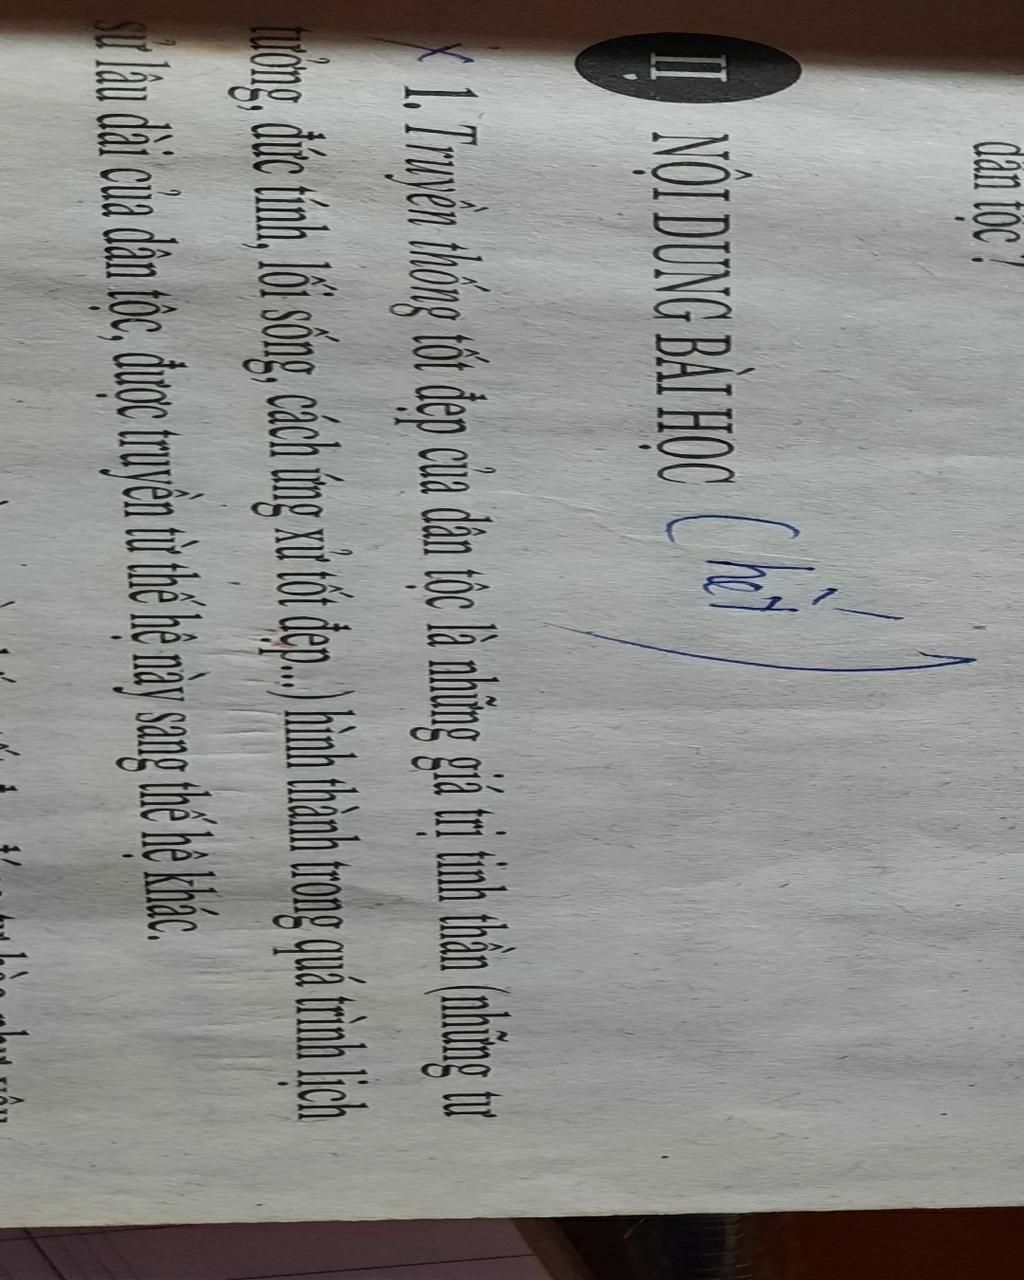 dân tộc ?
II NỘI DUNG BÀI HỌC (hết)
x 1. Truyền thống tốt đẹp của dân tộc là những giá trị tinh thần (những tư
tưởng, đức tính, lối sống, cách ứng xử tốt đẹp...) hình thành trong quá trình lịch
sử lâu dài của dân tộc, được truyền từ thế hệ này sang thế hệ khác.